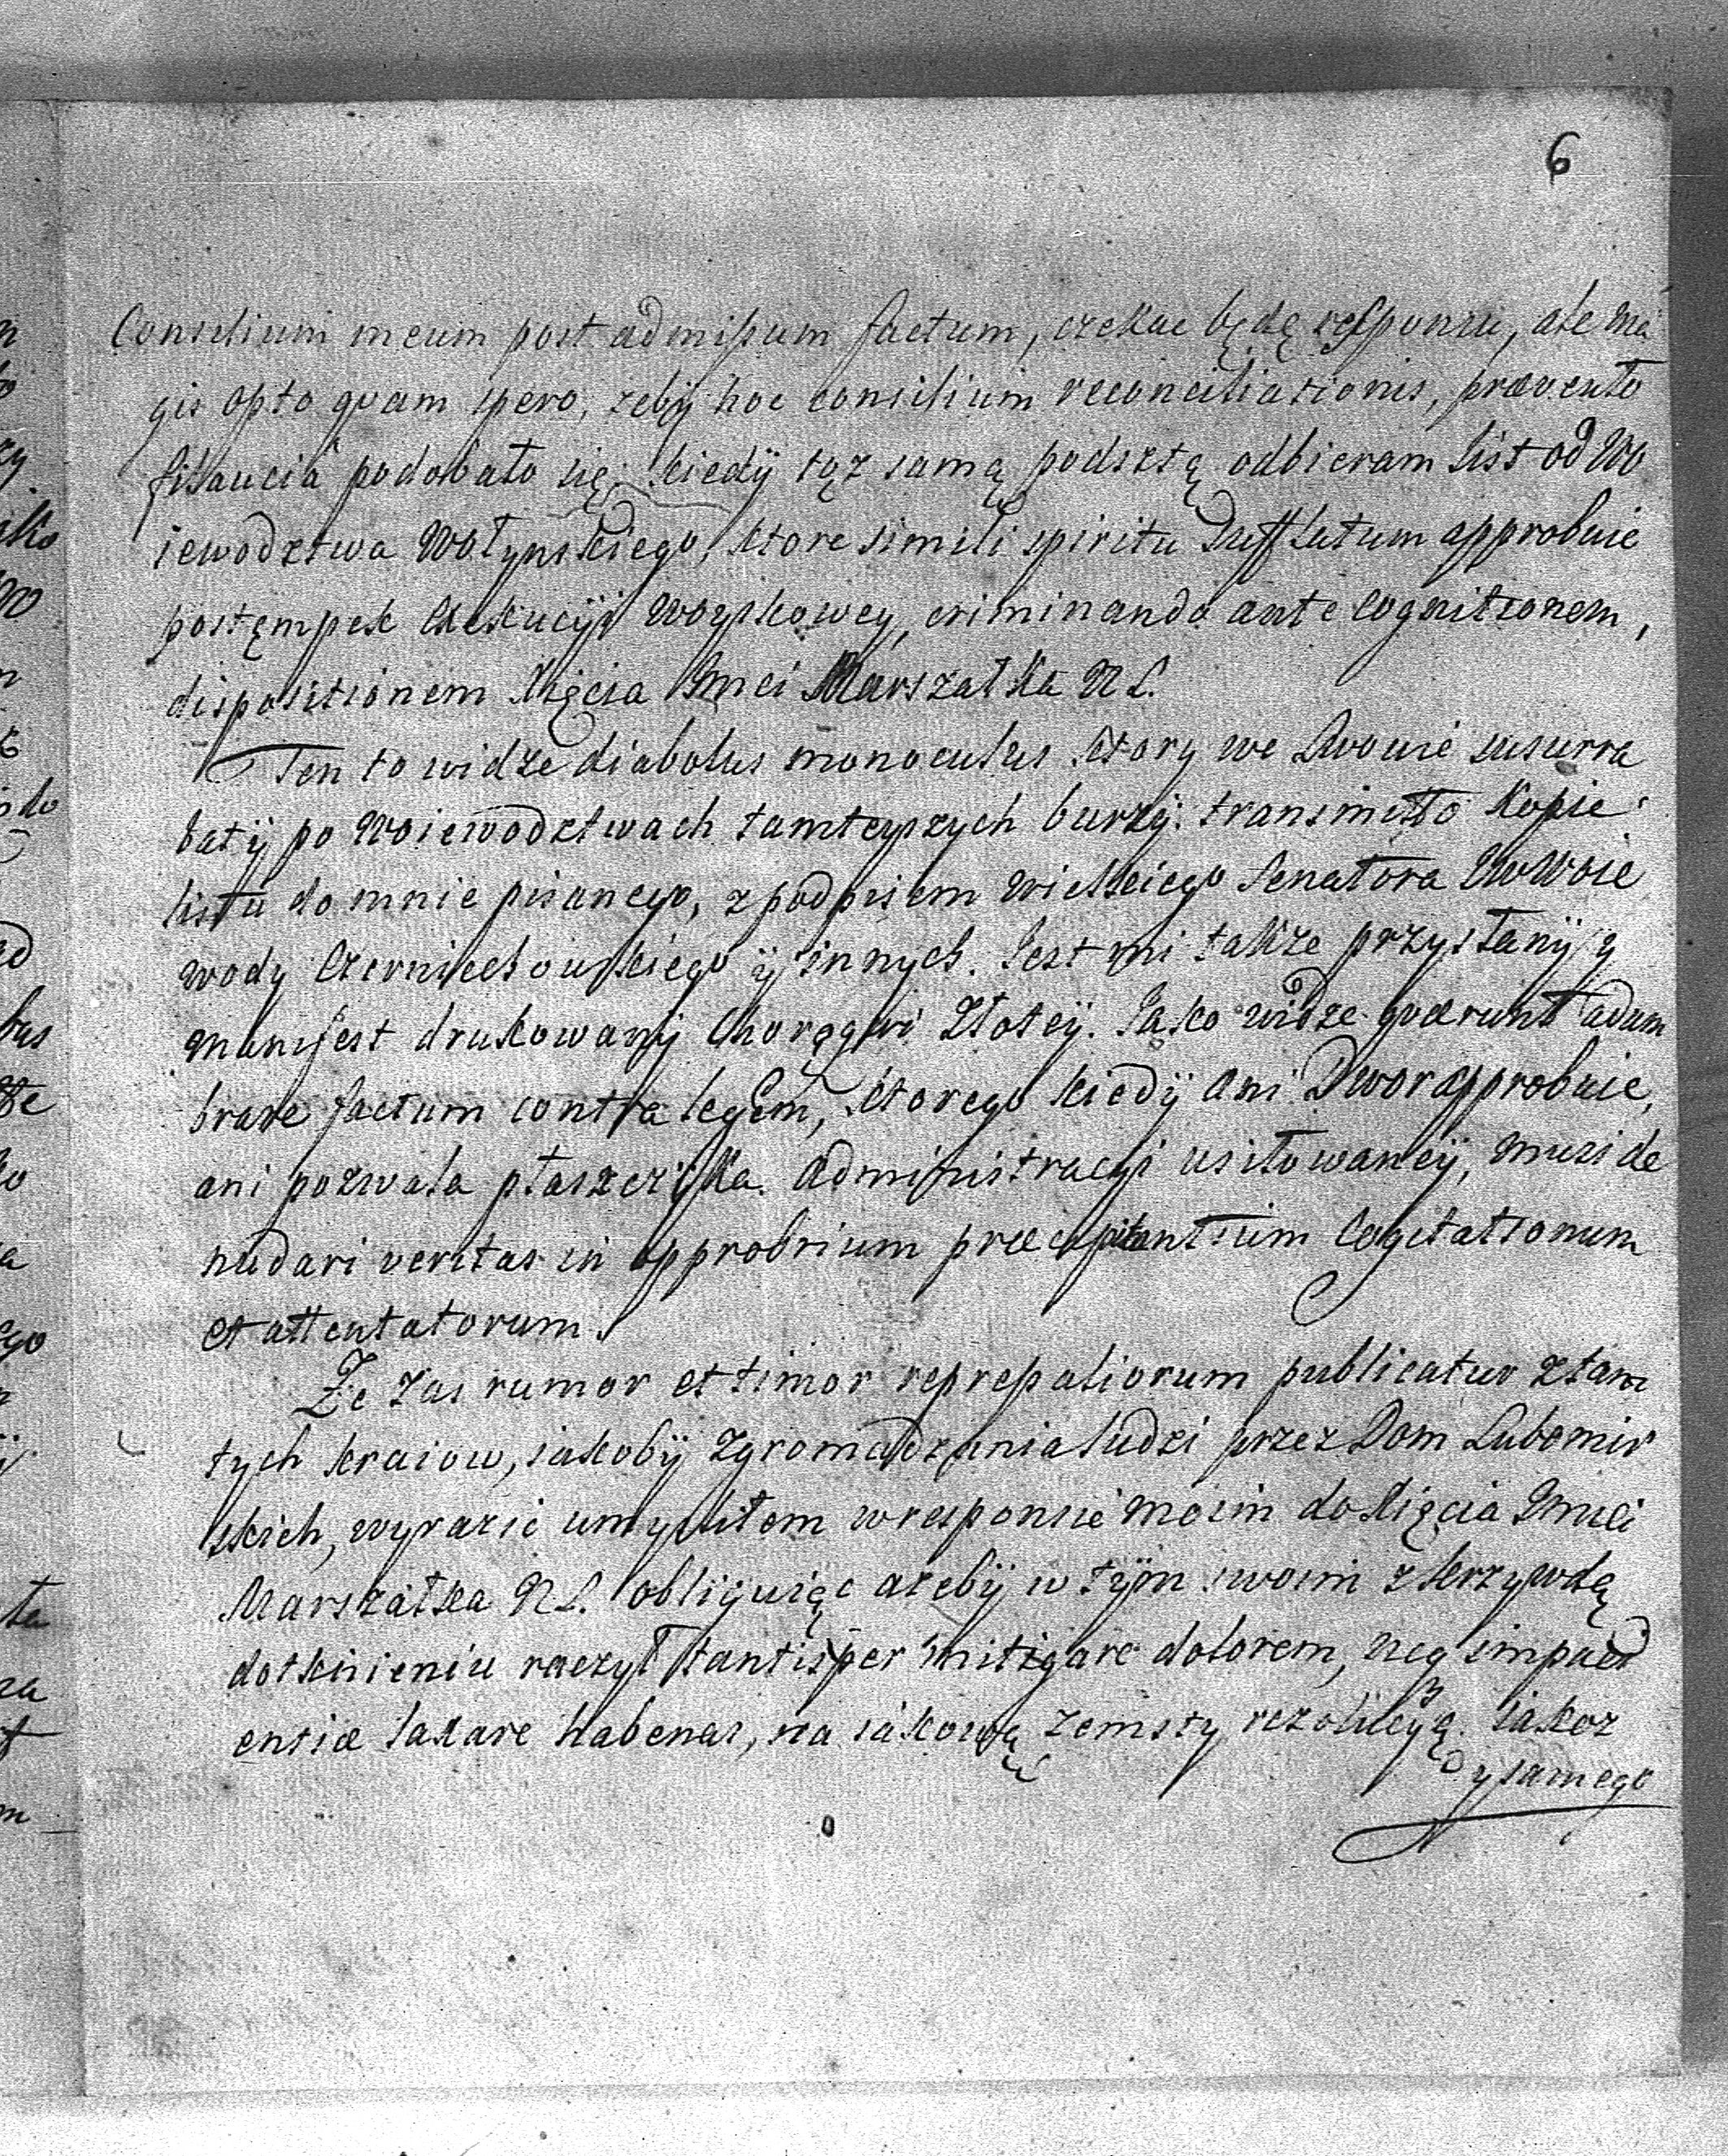 6
Consilium meum post admissum factum, czekac będę responsu, ale ma
gis opto quam spero, zeby hoc consilium reconciliationis, prævento
podobało się, kiedÿ tąz samą podsztą odbieram list od Wo
iewodztwa Wołynskiego, ktore simili spiritu approbuie
postęmpek Exekucÿi Woyskowey, criminando ante Cognitionem,
dispositionem Xięcia Jmci Marszałka N L.
Ten to widze diabolus monoculus ktory we Lwowie susurra
batÿ po Woiewodztwach tamteyszych burzÿ. transmitto Kopie
listu do mnie pisanego, z podpisem wielkiego Senatora Woie
wody Czerniechowskiego ÿ innych. Jest mi takze przysłanÿ y
manifest drukowanÿ Chorągwi Złoteÿ. Jako widze quærunt adum
brare factum contra legem, ktorego kiedÿ ani Dwor approbuie,
ani pozwala płaszczÿka Administracyi usiłowaneÿ, musi de
nudari veritas in opprobrium præcipitantium Cogitationum
et attentatorum.
Ze zas rumor et timor represaliorum publicatur z tam
tych kraiow, iakobÿ zgromadzenia ludzi przez Dom Lubomir
skich, wyrazić umysliłem w responsie moim do Xięcia Jmci
Marszałka N L. obliguiąc azebÿ w tÿm swoim z krzywdą
dotknieniu raczył tantisper mitigare dolorem, neq impati
entiæ laxare habenas, na iakową zemsty rezolucÿą. iakoz
y samego